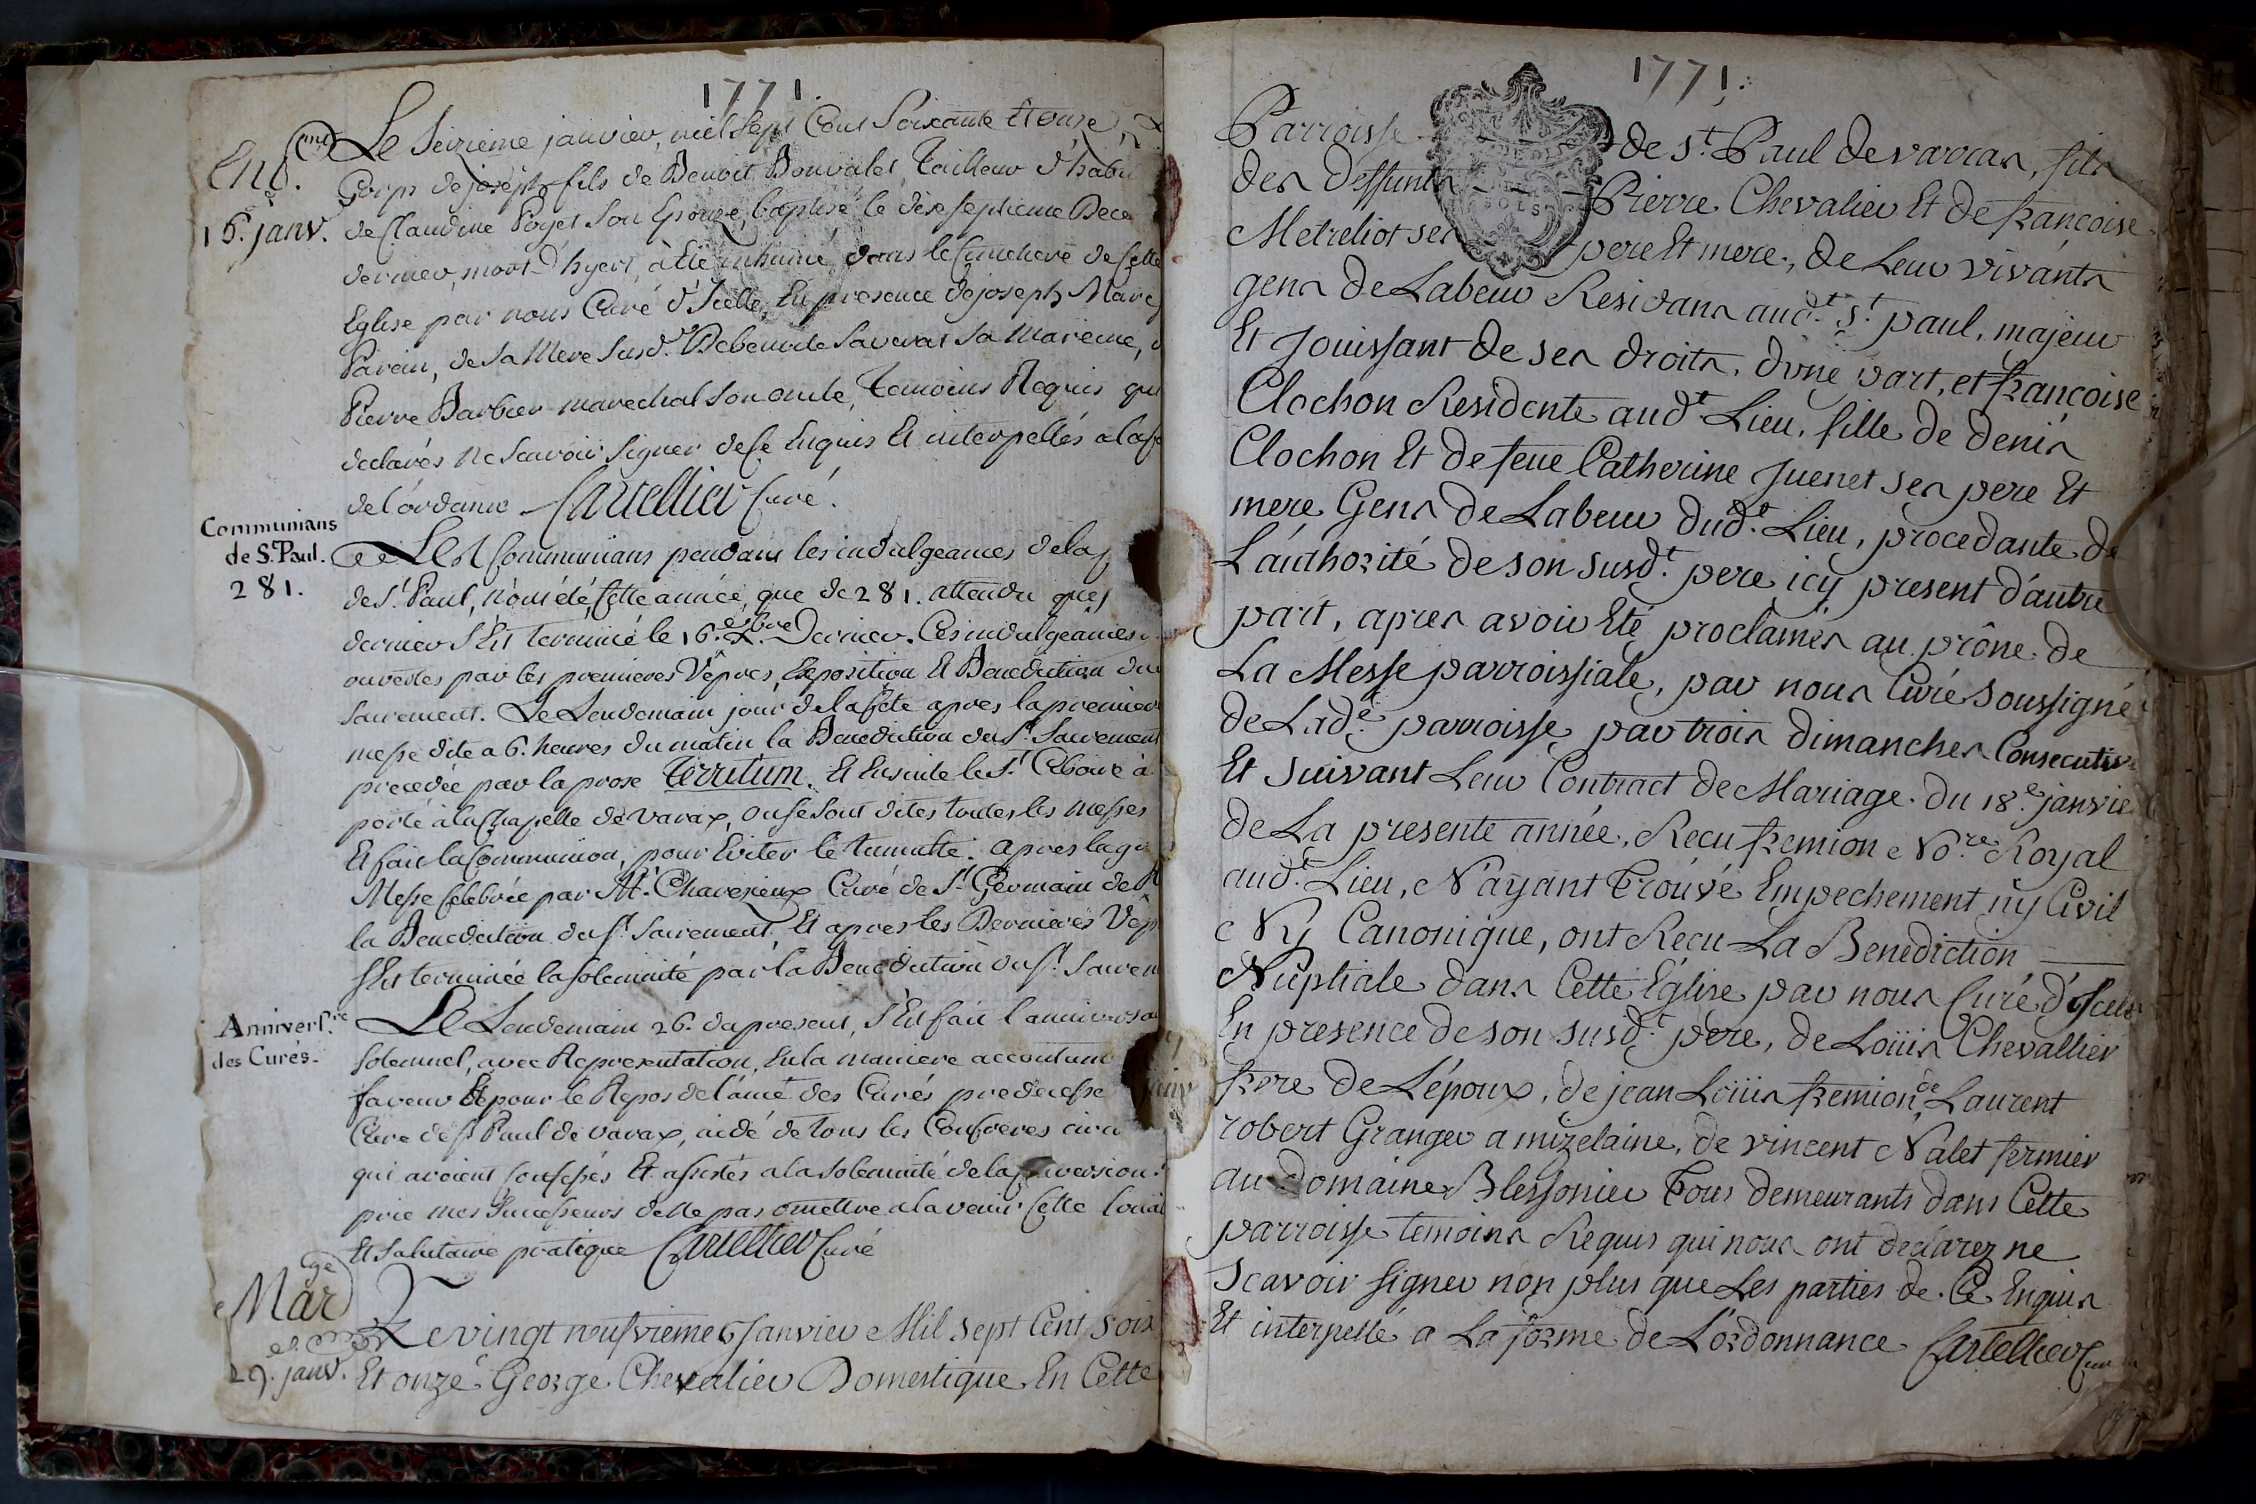 1771.
Le Seizieme janvier, mil Sept Cent Soixante Et onze, Le
Corps de joseph fils de Benoit Bouvalet, Tailleur d'habi
de Claudine Poget Son Epouze, baptisé le dixseptieme Dece
dernier, mort d'hyert, à Eté inhumé dans le Cimetiere de Cette
Eglise par nous Curé d'Icelle, En presence de joseph Mare
Parein, de Sa Mere Susd. Savarat Sa Mareine,
Pierre Barbier marechal Son oncle, Temoins Requis qui
declarés ne Scavoir Signer de Ce Enquis Et interpellés a la fo
de l'ordance Cartellier Curé.
Ent.
16. janv.
Communians
de St. Paul.
281.
Les Communians pendant les indulgeances de la
de St. Paul, n'ont été Cette année, que de 281. attendu que
dernier S'Est terminé le 16. Dernier. Ces indulgeances
ouvertes par les premieres Vêpres, Exposition Et Benediction du
Sacrement. Le Lendemain jour de la fête apres la premiere
messe dite a 6. heures du matin la Benediction du St. Sacrement
precedée par la prose Territum. Et Ensuite le St. Ciboire à
porté a la Chapelle de Varax, ou se Sont dites toutes les messes
Et fait la Communion, pour Eviter le tumulte. apres la g
Messe Celebrée par Mr. Chavezieux Curé de St. Germain de
la Benediction du St. Sacrement, Et apres les Dernieres Vêp
S'Est terminée la Solemnité par la Benediction du St. Sacrem
Anniversre
des Curés.
Le Lendemain 26. du present, S'Est fait l'anniversa
Solemnel, avec Representation, En la maniere accoutum
faveur Et pour le Repos de l'âme des Curés predecesse
Cure de St Paul de Varax, aidé de tous les Confreres
qui avoient Confessés Et assistés a la Solemnité de la
prie mes Successeurs de ne pas omettre a la venir Cette Louab
Et Salutaire pratique Cartellier Curé
Marge
29. janv.
Le vingt neufvieme Janvier Mil Sept Cent Soix
Et onze George Chevalier Domestique En Cette
1771.
Parroisse de St. Paul de varax, fils
des deffunts Pierre Chevalier Et de françoise
Metreliot ses pere Et mere, de Leur vivants
gens de Labeur Residans audt. St. paul, majeur
Et Jouissant de ses droits, d'une part, et françoise
Clochon Residente audt. Lieu, fille de denis
Clochon Et de feue Catherine Juenet ses pere Et
mere Gens de Labeur dudt. Lieu, procedante de
L'authorité de son susdt. pere icy present d'autre
part, apres avoir Eté proclamés au prône de
La Messe parroissiale, par nous Curé soussigné
de Lade. parroisse, par trois dimanches Consecutiv
Et suivant Leur Contract de Mariage du 18e. janvie
de La presente année, Recu fremion Nore. Royal
audt. Lieu, N'ayant Trouvé Empechement ny Civil
Ny Canonique, ont Recu La Benediction
Nuptiale dans Cette Eglise par nous Curé d'Icelle
En presence de son susdt. pere, de Loüis Chevallier
frere de L'époux, de jean Loüis fremion, de Laurent
robert Granger a mizelaine, de vincent Nalet fermier
au Domaine Blessonier Tous demeurants dans Cette
parroisse temoins Requis qui nous ont declarez ne
Scavoir signer non plus que Les parties de Ce Enquis
Et interpellé a La forme de L'ordonnance Cartellier Cur